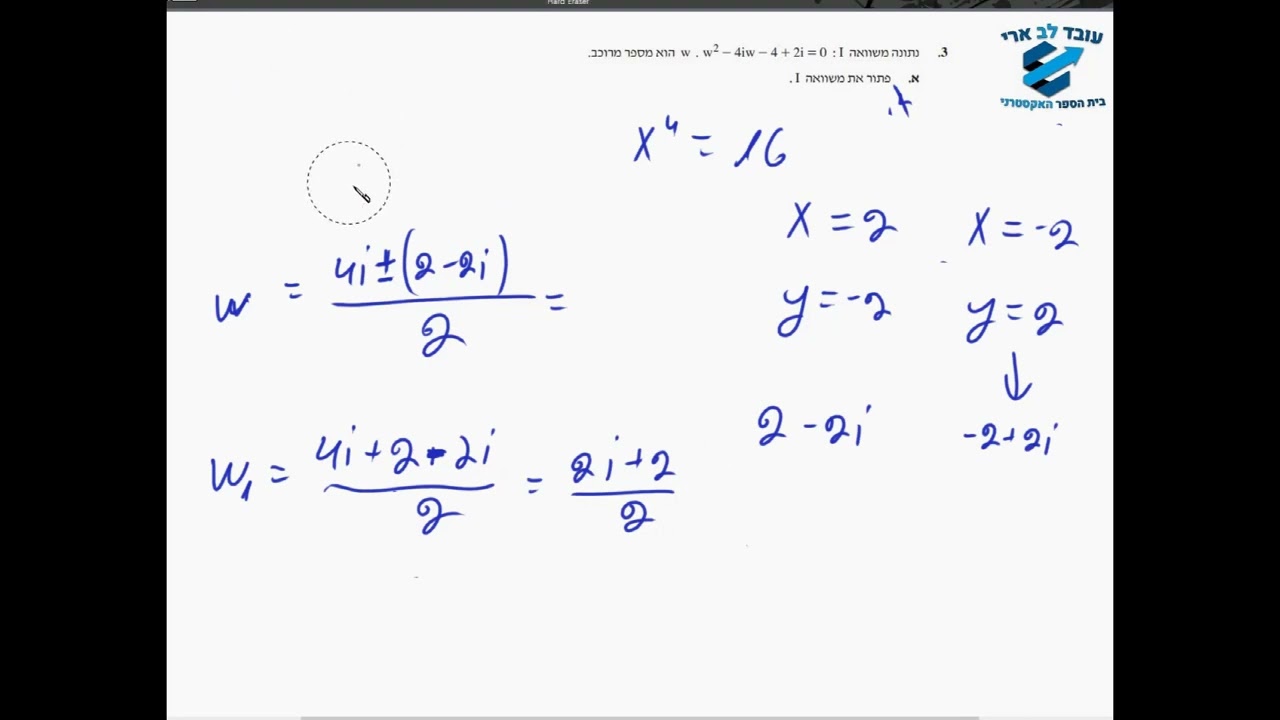 Hard Eraser
עובד לב ארי
בית הספר האקסטרני
3. נתונה משוואה I : w² − 4iw − 4 + 2i = 0 . w הוא מספר מרוכב.
א. פתור את משוואה I .
x⁴ = 16
x = 2 x = -2
y = -2 y = 2
↓
2 - 2i -2+2i
w = (4i ± (2 - 2i))/2 =
w₁ = (4i + 2 - 2i)/2 = (2i + 2)/2